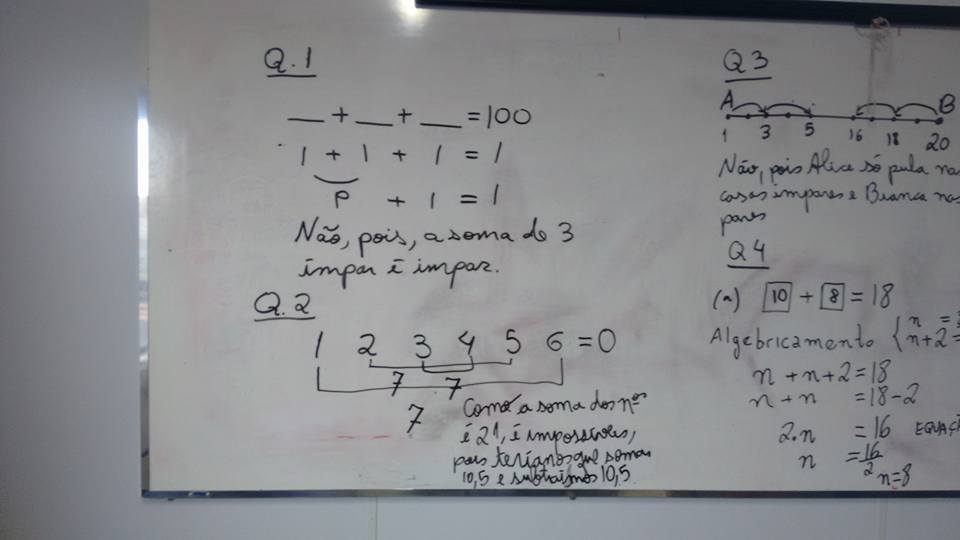 Q.1
__ + __ + __ = 100
1 + 1 + 1 = 1
P + 1 = 1
Não, pois, a soma de 3
ímpar é impar.
Q.2
1 2 3 4 5 6 = 0
7 7
7
Como a soma dos nos
é 21, é impossível,
pois teríamos que somar
10,5 e subtraírmos 10,5
Q3
A B
1 3 5 16 18 20
Não, pois Alice só pula nas
casas impares e Bianca nas
pares
Q4
(a) 10 + 8 = 18
Algebricamente { n =
n+2=
n + n + 2 = 18
n + n = 18 - 2
2.n = 16
n = 16/2
n=8